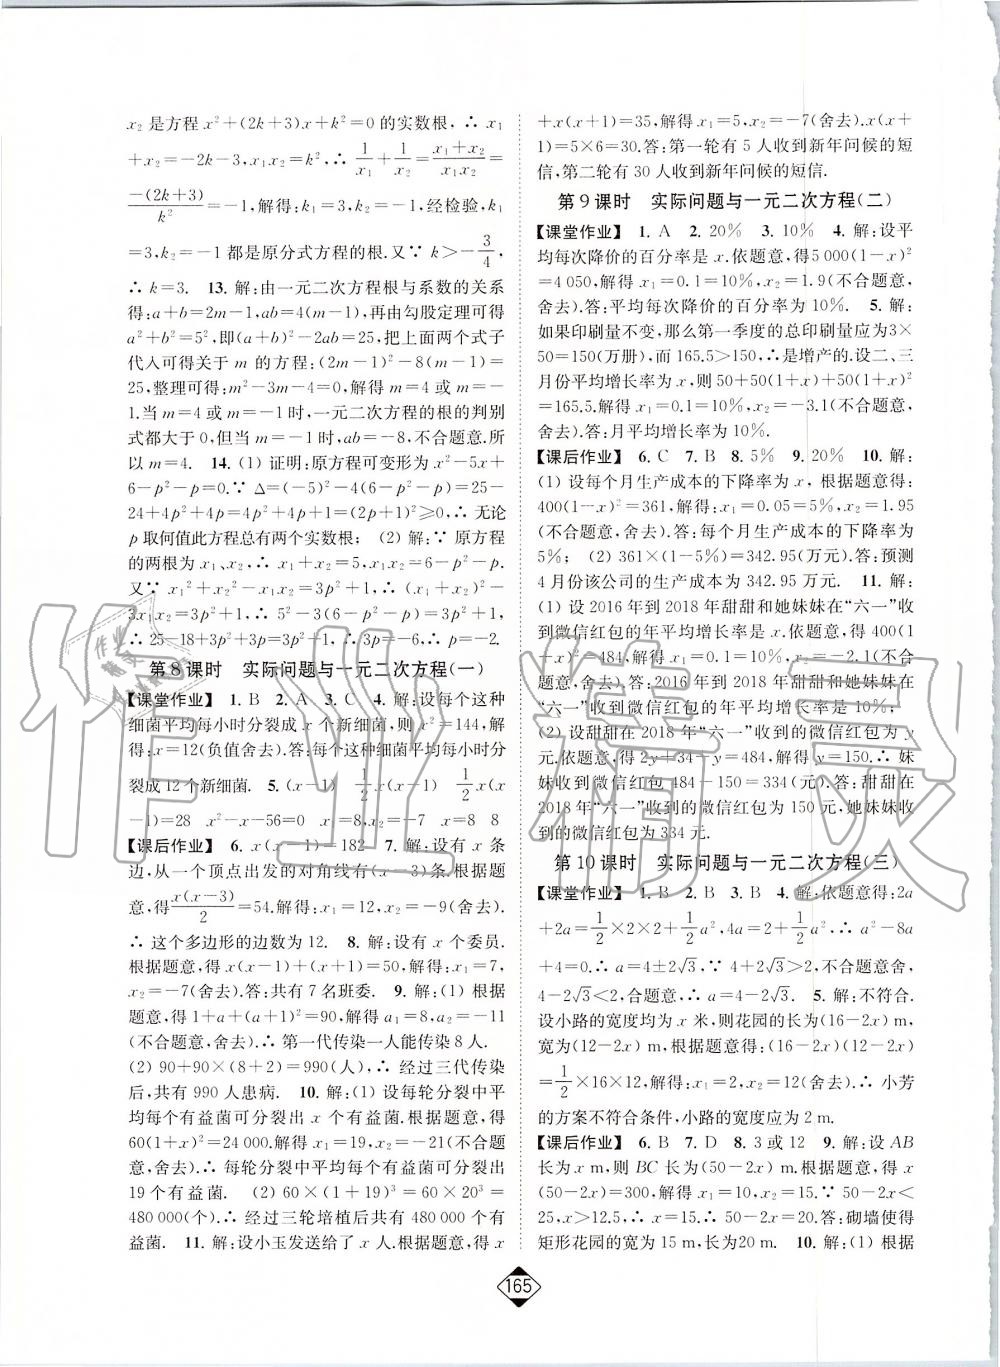 x₂是方程 x²+(2k+3)x+k²=0 的实数根,∴ x₁
+x₂=-2k-3,x₁x₂=k²,∴ 1/x₁+1/x₂=(x₁+x₂)/(x₁x₂)=
-(2k+3)/k²=-1,解得:k₁=3,k₂=-1,经检验,k₁
=3,k₂=-1 都是原分式方程的根.又∵ k>-3/4,
∴ k=3. 13. 解:由一元二次方程根与系数的关系
得:a+b=2m-1,ab=4(m-1),再由勾股定理可得
a²+b²=5²,即(a+b)²-2ab=25,把上面两个式子
代入可得关于 m 的方程:(2m-1)²-8(m-1)=
25,整理可得:m²-3m-4=0,解得 m=4 或 m=-
1.当 m=4 或 m=-1时,一元二次方程的根的判别
式都大于 0,但当 m=-1时,ab=-8,不合题意.所
以 m=4. 14. (1) 证明:原方程可变形为 x²-5x+
6-p²-p=0.∵ Δ=(-5)²-4(6-p²-p)=25-
24+4p²+4p=4p²+4p+1=(2p+1)²≥0,∴ 无论
p 取何值此方程总有两个实数根; (2) 解:∵ 原方程
的两根为 x₁、x₂,∴ x₁+x₂=5,x₁x₂=6-p²-p.
又∵ x₁²+x₂²-x₁x₂=3p²+1,∴ (x₁+x₂)²-
3x₁x₂=3p²+1,∴ 5²-3(6-p²-p)=3p²+1,
∴ 25-18+3p²+3p=3p²+1,∴ 3p=-6,∴ p=-2.
第 8 课时 实际问题与一元二次方程(一)
【课堂作业】 1. B 2. A 3. C 4. 解:设每个这种
细菌平均每小时分裂成 x 个新细菌,则 x²=144,解
得:x=12(负值舍去).答:每个这种细菌平均每小时分
裂成 12 个新细菌. 5. (x-1) 1/2x(x-1) 1/2x(x
-1)=28 x²-x-56=0 x₁=8,x₂=-7 x=8 8
【课后作业】 6. x(x-1)=182 7. 解:设有 x 条
边,从一个顶点出发的对角线有(x-3)条.根据题
意,得 x(x-3)/2=54.解得:x₁=12,x₂=-9(舍去).
∴ 这个多边形的边数为 12. 8. 解:设有 x 个委员.
根据题意,得 x(x-1)+(x+1)=50,解得:x₁=7,
x₂=-7(舍去).答:共有 7 名班委. 9. 解:(1) 根据
题意,得 1+a+(a+1)²=90,解得 a₁=8,a₂=-11
(不合题意,舍去).∴ 第一代传染一人能传染 8 人.
(2) 90+90×(8+2)=990(人),∴ 经过三代传染
后,共有 990 人患病. 10. 解:(1) 设每轮分裂中平
均每个有益菌可分裂出 x 个有益菌.根据题意,得
60(1+x)²=24 000.解得:x₁=19,x₂=-21(不合题
意,舍去).∴ 每轮分裂中平均每个有益菌可分裂出
19 个有益菌. (2) 60×(1+19)³=60×20³=
480 000(个).∴ 经过三轮培植后共有 480 000 个有
益菌. 11. 解:设小玉发送给了 x 人.根据题意,得 x
+x(x+1)=35,解得 x₁=5,x₂=-7(舍去).x(x+
1)=5×6=30.答:第一轮有 5 人收到新年问候的短
信,第二轮有 30 人收到新年问候的短信.
第 9 课时 实际问题与一元二次方程(二)
【课堂作业】 1. A 2. 20% 3. 10% 4. 解:设平
均每次降价的百分率是 x.依题意,得5 000(1-x)²
=4 050,解得:x₁=0.1=10%,x₂=1.9(不合题意,
舍去).答:平均每次降价的百分率为 10%. 5. 解:
如果印刷量不变,那么第一季度的总印刷量应为3×
50=150(万册),而 165.5>150,∴是增产的.设二、三
月份平均增长率为 x,则 50+50(1+x)+50(1+x)²
=165.5.解得 x₁=0.1=10%,x₂=-3.1(不合题意,
舍去).答:月平均增长率为 10%.
【课后作业】 6. C 7. B 8. 5% 9. 20% 10. 解:
(1) 设每个月生产成本的下降率为 x,根据题意得:
400(1-x)²=361,解得:x₁=0.05=5%,x₂=1.95
(不合题意,舍去).答:每个月生产成本的下降率为
5%; (2) 361×(1-5%)=342.95(万元).答:预测
4 月份该公司的生产成本为 342.95 万元. 11. 解:
(1) 设 2016 年到 2018 年甜甜和她妹妹在“六一”收
到微信红包的年平均增长率是 x.依题意,得 400(1
+x)²=484,解得 x₁=0.1=10%,x₂=-2.1(不合题
意,舍去).答:2016 年到 2018 年甜甜和她妹妹在
“六一”收到微信红包的年平均增长率为10%;
(2) 设甜甜在 2018 年“六一”收到的微信红包为 y
元.依题意,得 2y+34+y=484,解得 y=150.∴ 妹
妹收到的微信红包 484-150=334(元).答:甜甜在
2018 年“六一”收到的微信红包为 150 元,她妹妹收
到的微信红包为 334 元.
第 10 课时 实际问题与一元二次方程(三)
【课堂作业】 1. B 2. B 3. B 4. 解:依题意得:2a
+2a=1/2×2×2+1/2a²,4a=2+1/2a²,∴ a²-8a
+4=0.∴ a=4±2√3,∵ 4+2√3>2,不合题意舍,
4-2√3<2,合题意,∴ a=4-2√3. 5. 解:不符合.
设小路的宽度均为 x 米,则花园的长为(16-2x) m,
宽为(12-2x) m,根据题意得:(16-2x)(12-2x)
=1/2×16×12,解得:x₁=2,x₂=12(舍去).∴ 小芳
的方案不符合条件,小路的宽度应为 2 m.
【课后作业】 6. B 7. D 8. 3 或 12 9. 解:设 AB
长为 x m,则 BC 长为(50-2x) m.根据题意,得 x
(50-2x)=300,解得 x₁=10,x₂=15.∵ 50-2x<
25,x>12.5,∴ x=15,50-2x=20.答:砌墙使得
矩形花园的宽为 15 m,长为20 m. 10. 解:(1) 根据
165
作业精灵